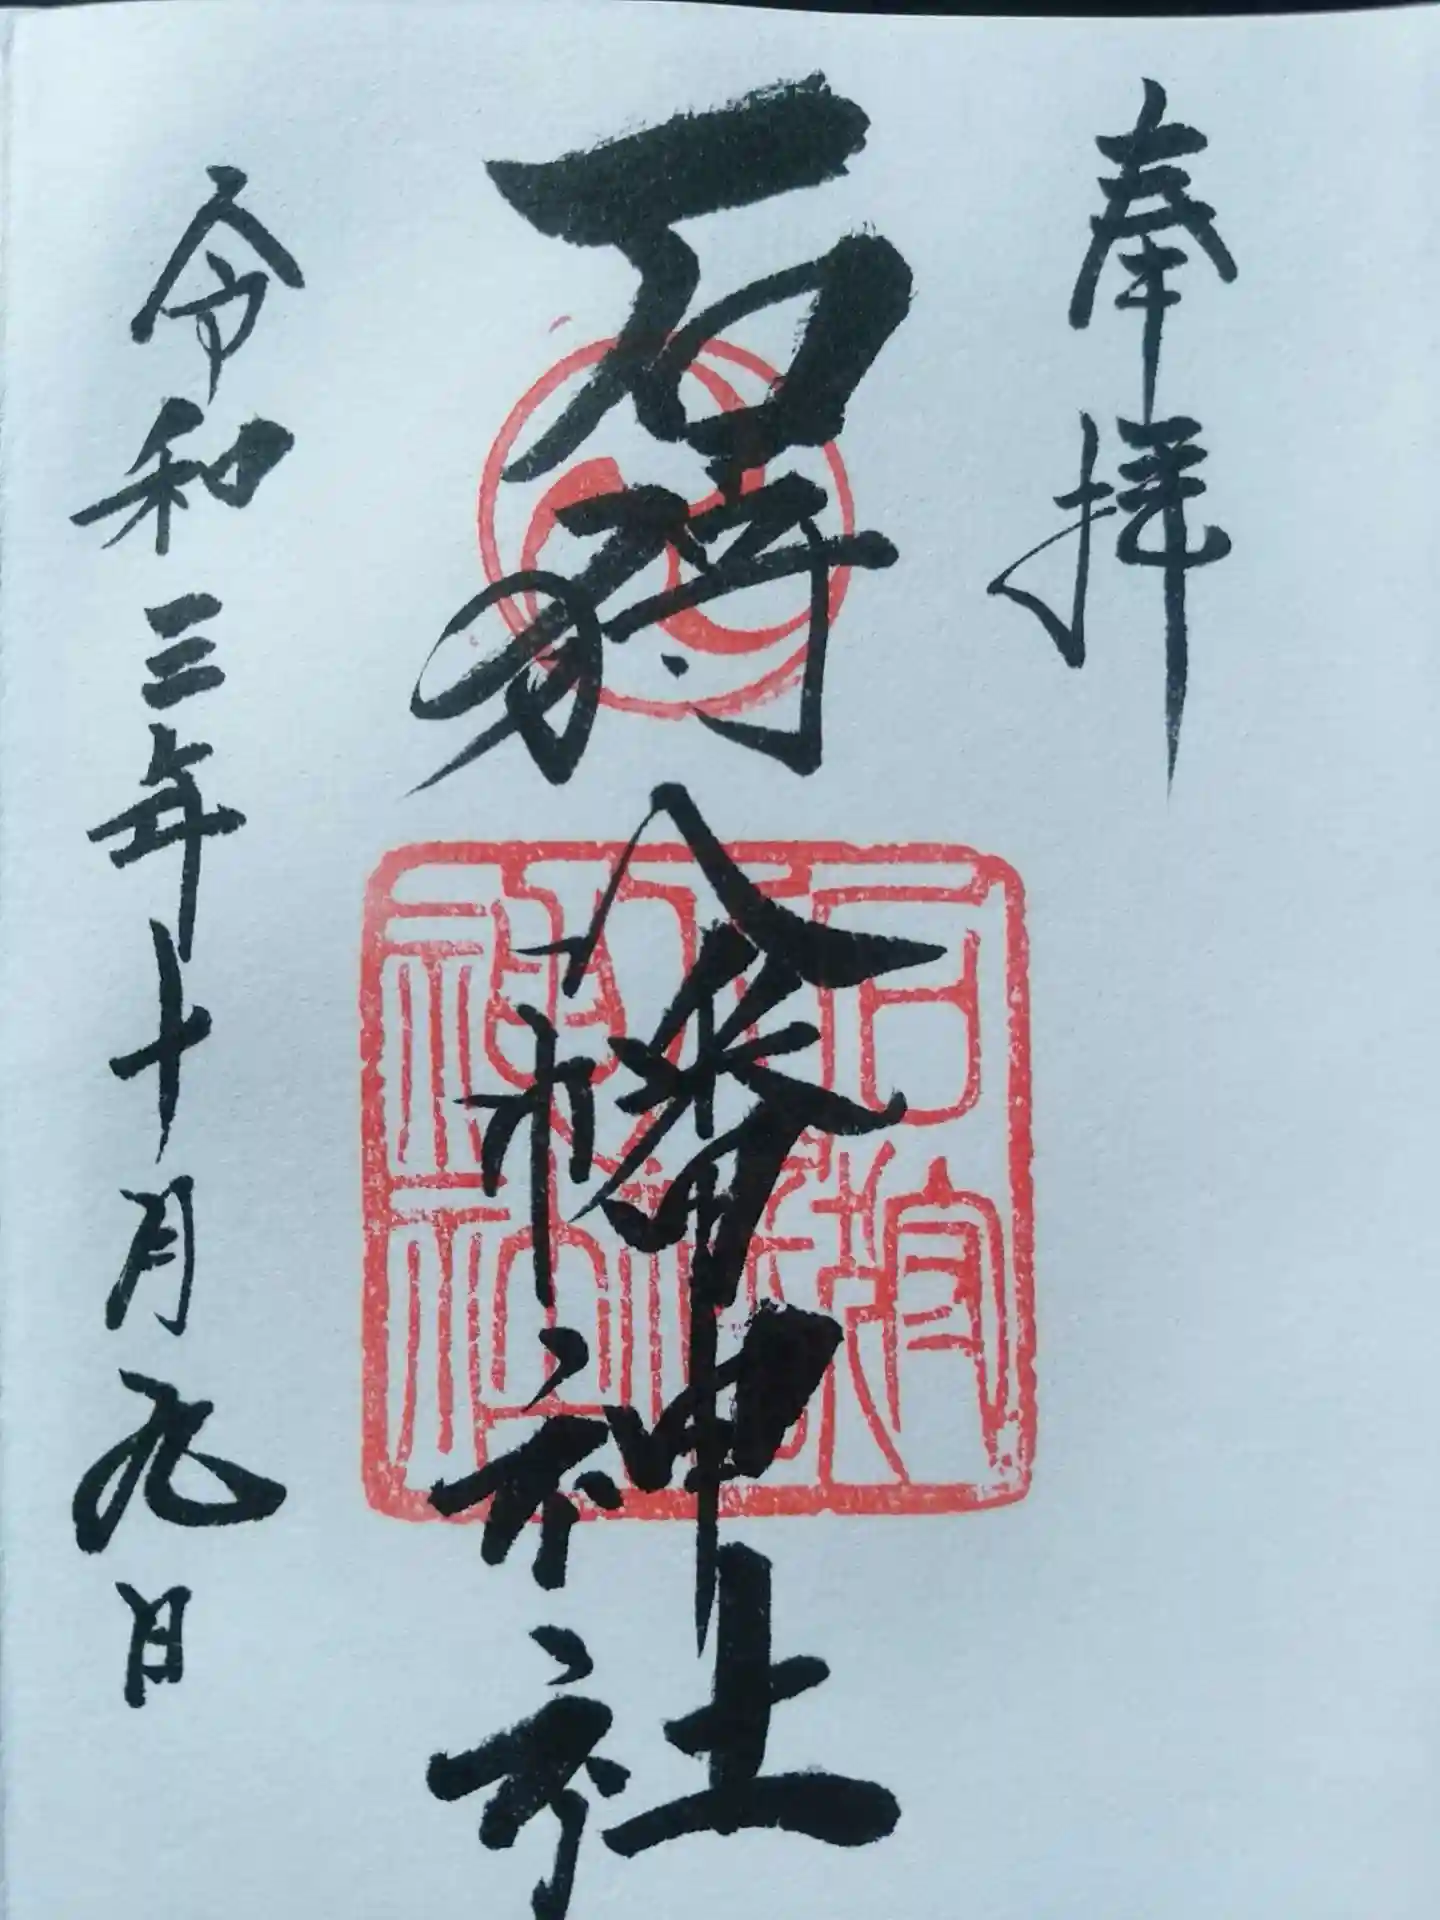 奉拝
石狩八幡神社
石狩
八幡
神社
令和三年十月九日